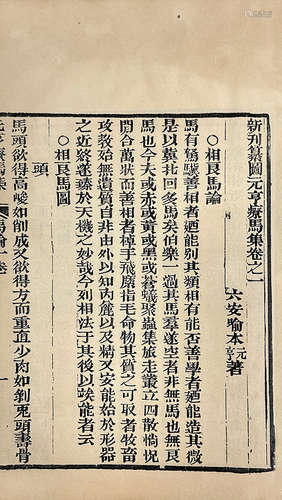 新刊纂圖元亨療馬集卷之一
六安喻本元亨著
○相良馬論
馬有駑驥善相者廼能別其類相有能否善學者廼能造其微
是以冀北回多馬矣伯樂一過其馬羣遂空者非無馬也無良
馬也今夫或赤或黃或蒼蟻聚蟲集旅走叢立四散惝怳
開合萬狀而善相者棹手飛靡指毛命物其質之可取者牧畜
攻教始無遺質自非由外以知内麄以及精又安能始於形器
之近終遂臻於天機之妙哉今列相法于其後以俟能者云
○相良馬圖
頭
馬頭欲得高峻如削成又欲得方而重宜少肉如剝兎頭壽骨